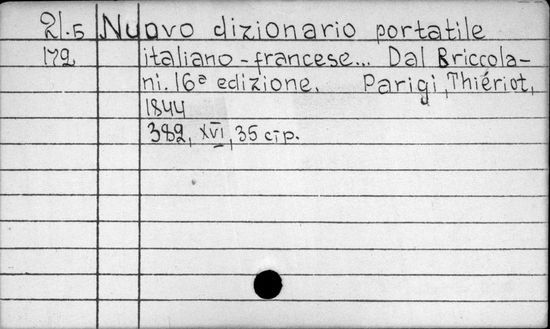 21.5 Nuovo dizionario portatile
172 italiano-francese... Dal Briccola-
ni. 16ª edizione. Parigi, Thiériot,
1844
382, XVI, 35 стр.